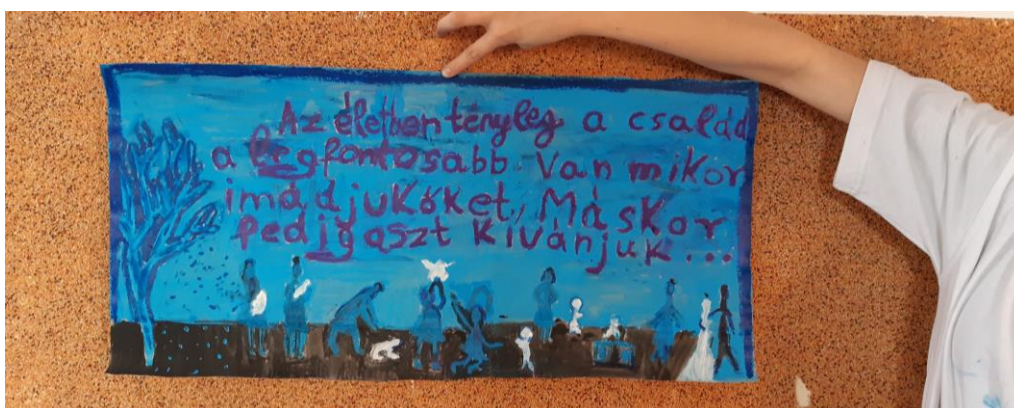 Az életben tényleg a család
a legfontosabb. Van mikor
imádjuk őket, Máskor
pedig aszt kívánjuk...